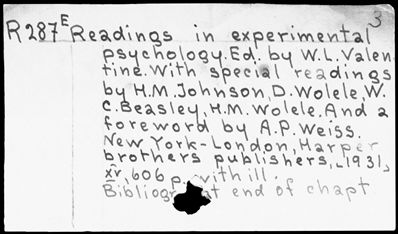 3
R287E Readings in experimental
psychology. Ed. by W.L. Valen-
tine. With special readings
by H.M. Johnson, D. Wolele, W.
C. Beasley, H.M. Wolele. And a
foreword by A.P. Weiss.
New York-London, Harper
brothers publishers, 1931,
xv, 606 p. with ill.
at end of chapt.